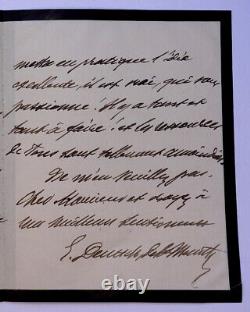 mettre en pratique l'idée
excellente, il est vrai, qui vous
passionne. Il y a tant et
tant à faire ! et les ressources
de tous sont tellement
Ne m'en veuillez pas
Cher Monsieur et croyez à
mes meilleurs sentiments